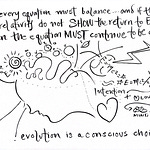 every equation must balance - and if the
relativity do not SHOW the return to E
the equation MUST continue to be
Intention +
MINUS
! evolution is a conscious choi